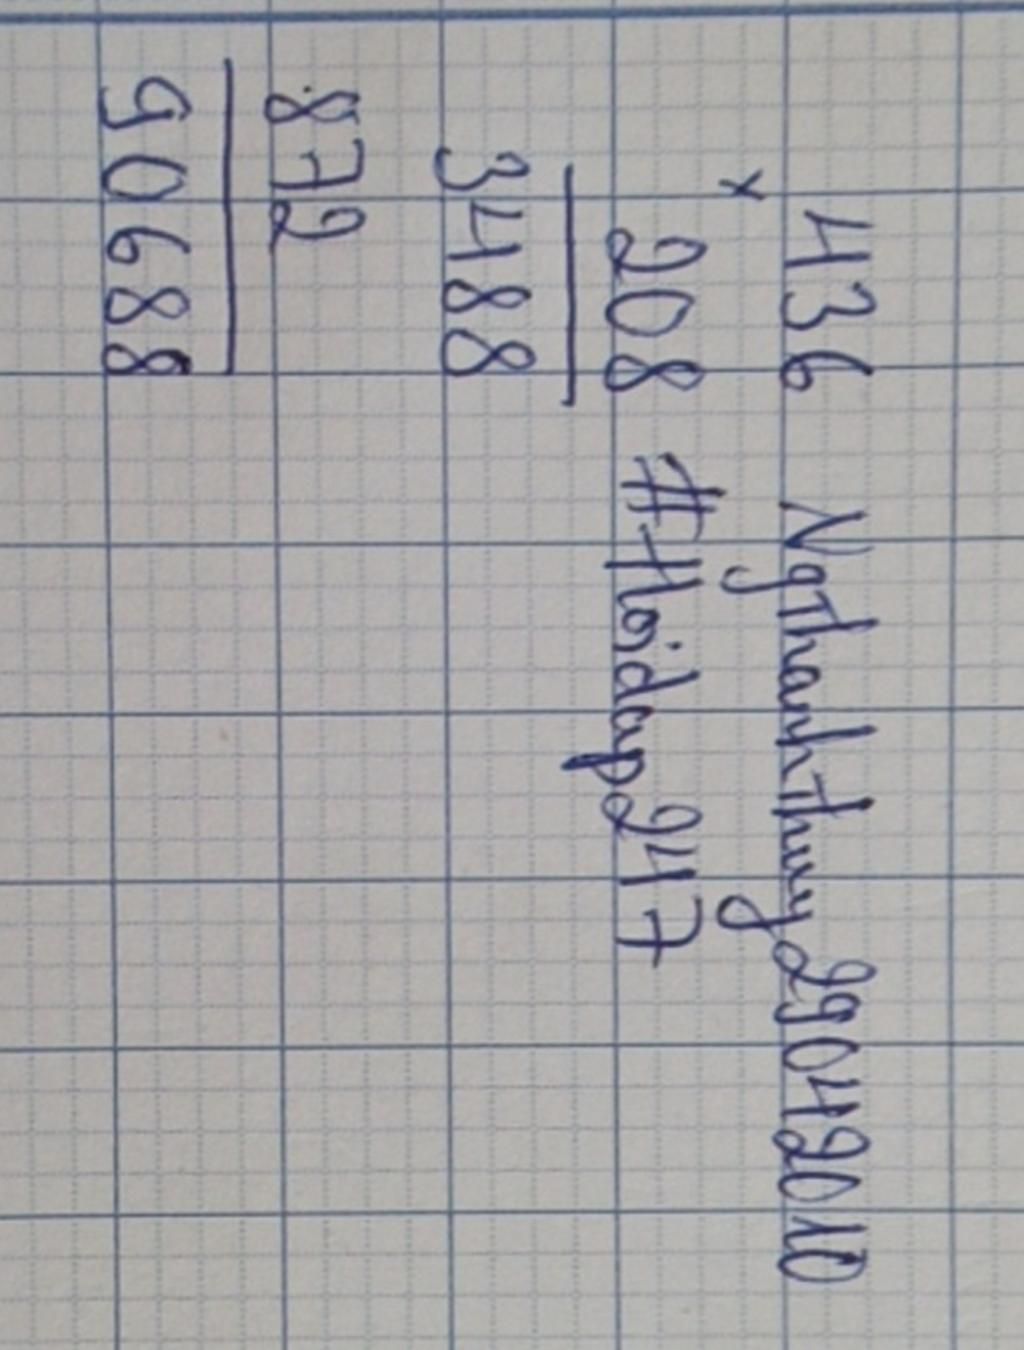 436 NgThanhThuy29042010
×
208 #Hoidap247
3488
872
90688